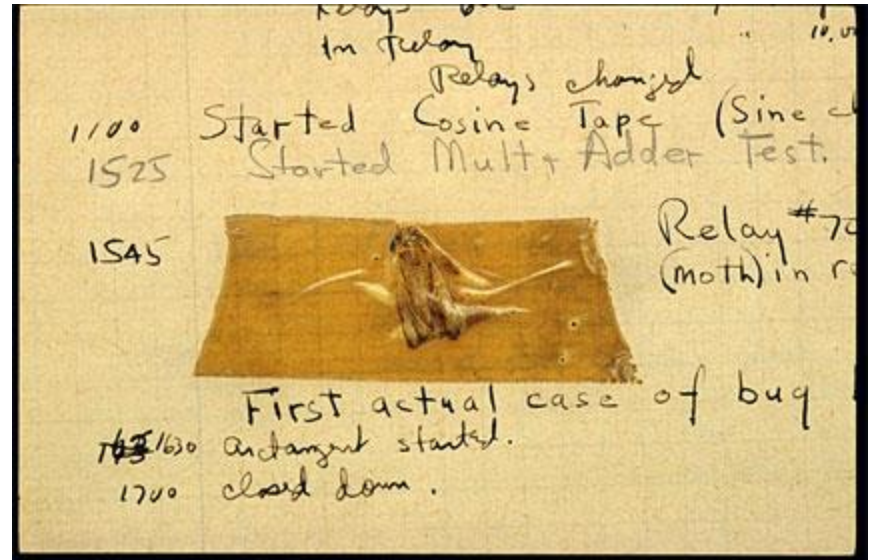 In relay
10.00
Relays changed
1100 Started Cosine Tape (Sine
1525 Started Mult + Adder Test.
1545 Relay #70
(moth) in
First actual case of bug
1630 arctangent started.
1700 closed down.